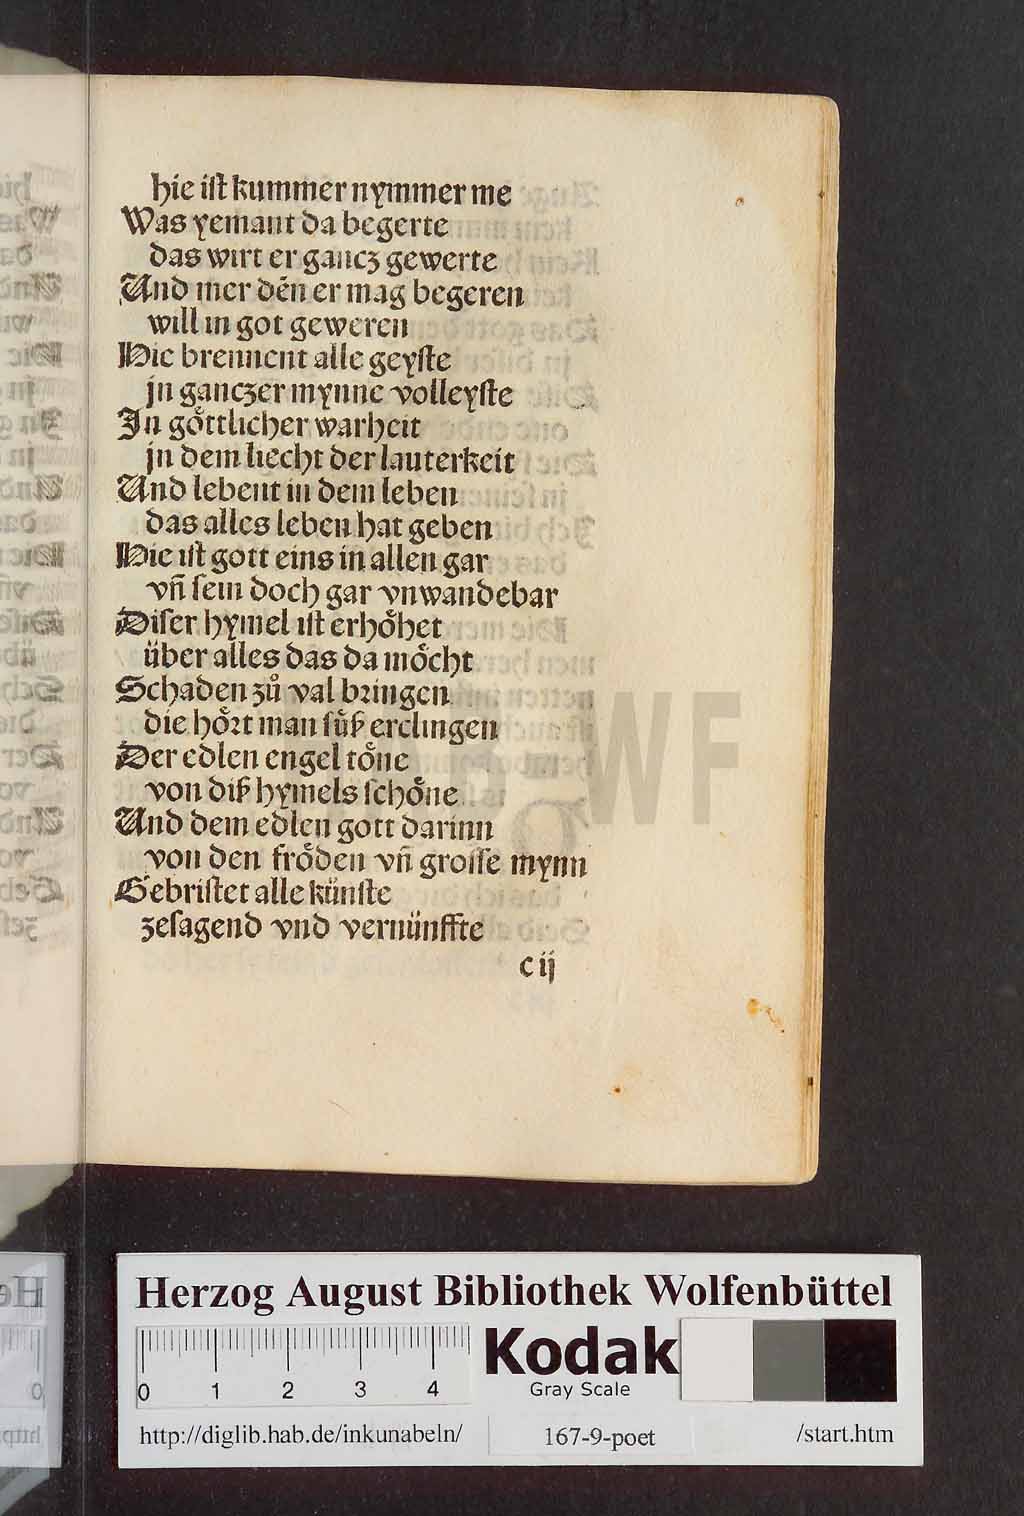 hie iſt kummer nymmer me
Was yemant da begerte
das wirt er gancz gewerte
Und mer dēn er mag begeren
will in got geweren
Hie brennent alle geyſte
jn ganczer mynne volleyſte
In goͤttlicher warheit
jn dem liecht der lauterkeit
Und lebent in dem leben
das alles leben hat geben
Hie iſt gott eins in allen gar
vñ ſein doch gar vnwandebar
Diſer hymel iſt erhoͤhet
über alles das da moͤcht
Schaden zuͦ val bꝛingen
die hoͤꝛt man ſuͤß erclingen
Der edlen engel toͤne
von diß hymels ſchoͤne
Und dem edlen gott darinn
von den froͤden vñ groſſe mynn
Gebriſtet alle künſte
zeſagend vnd vernünffte
c ij
WF
Herzog August Bibliothek Wolfenbüttel
0 1 2 3 4
Kodak
Gray Scale
http://diglib.hab.de/inkunabeln/ 167-9-poet /start.htm